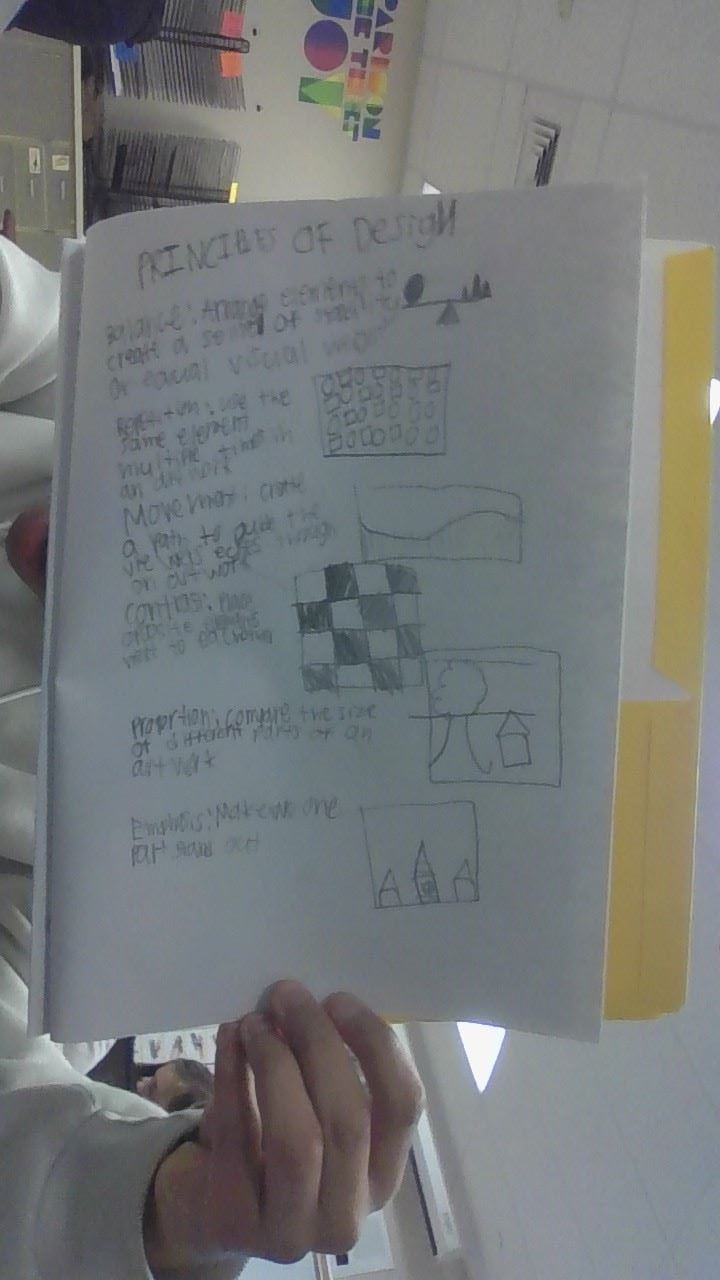 PRINCIPLES OF DesigN
Balance: Arrange elements to
create a sense of stability
or equal visual
Repetition: use the
same element
multiple times in
an art work
Movement: create
a path to guide the
eyes through
an art work
contrast: Place
next to each other
Proportion: compare the size
of different parts of an
art work
Emphasis: Make one
part stand out